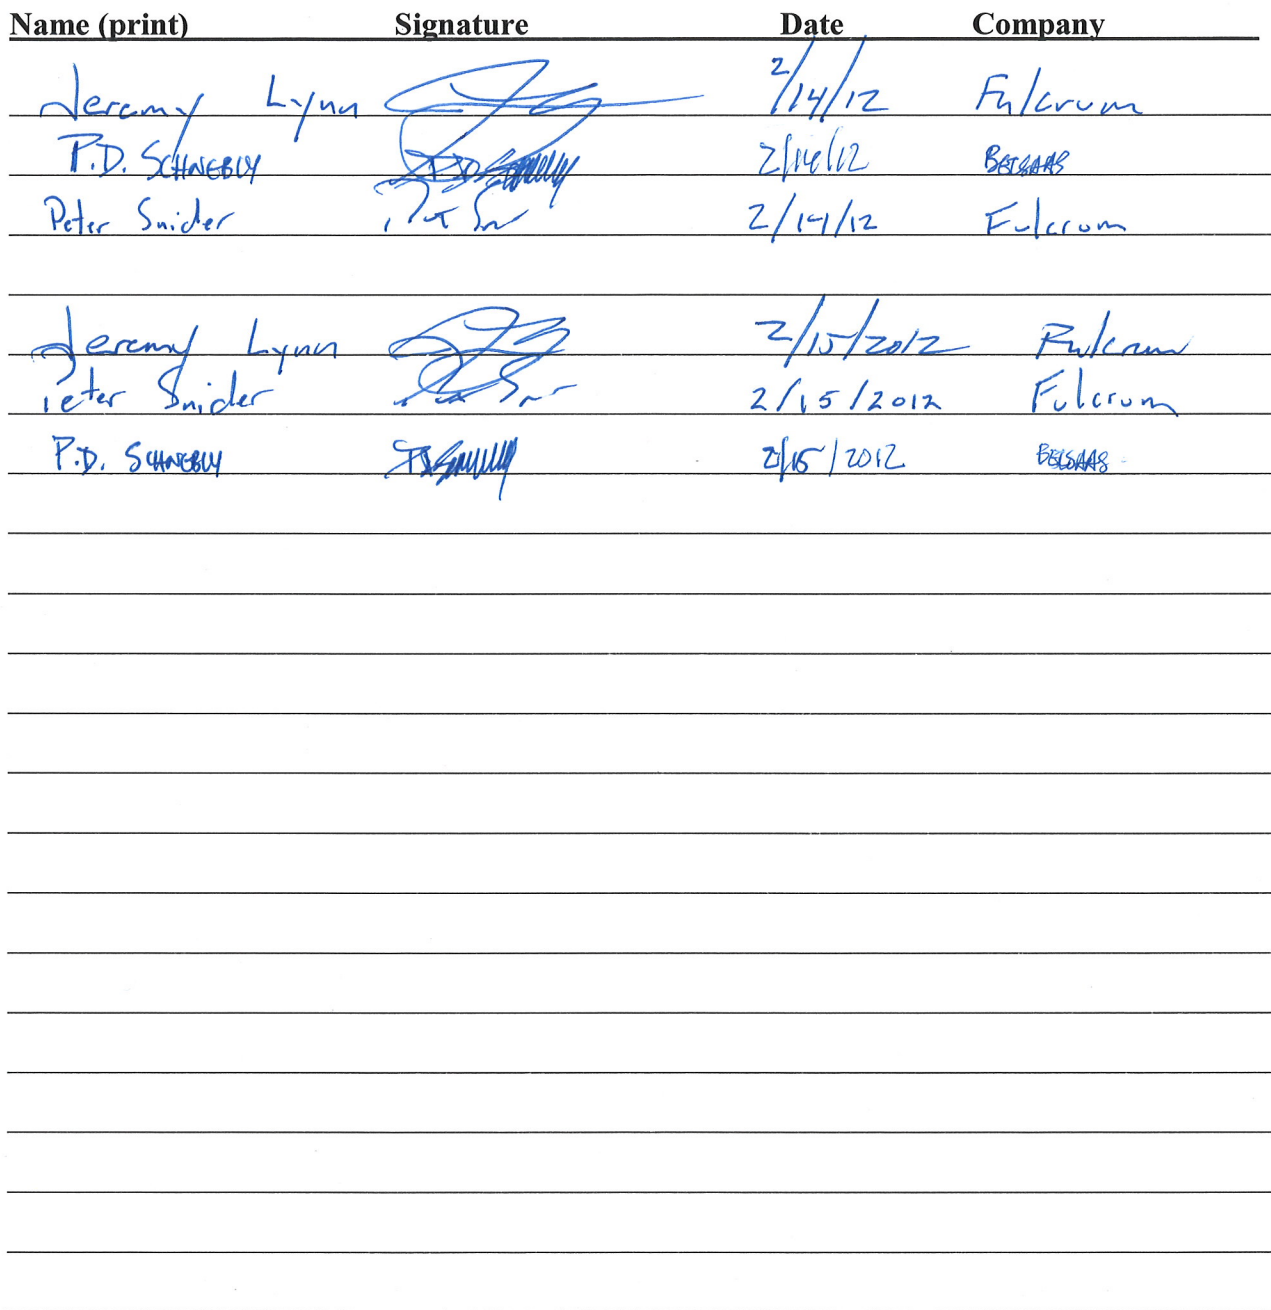 Name (print) Signature Date Company
Jeremy Lynn 2/14/12 Fulcrum
P.D. SCHNEBLY 2/14/12
Peter Snider 2/14/12 Fulcrum
Jeremy Lynn 2/15/2012 Fulcrum
Peter Snider 2/15/2012 Fulcrum
P.D. SCHNEBLY 2/15/2012